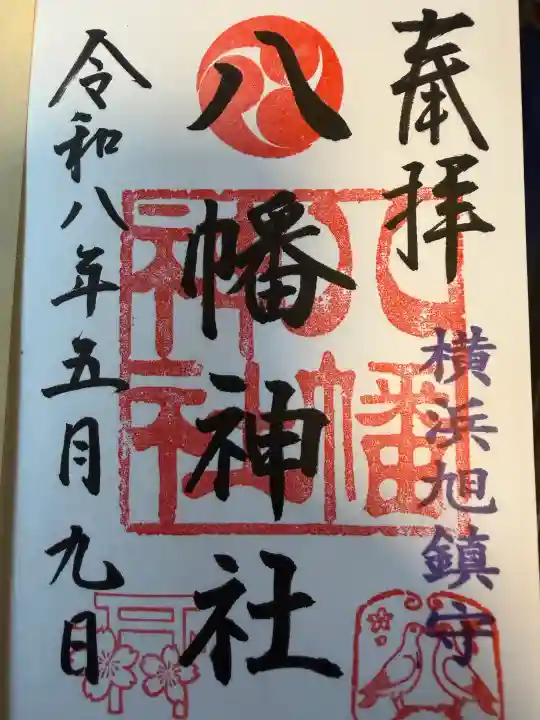 奉拝
横浜旭鎮守
八幡神社
八幡神社
令和八年五月九日